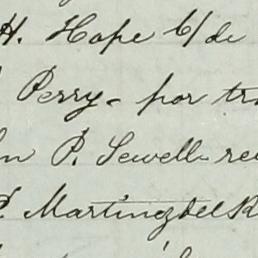 H. Hope b/de
Perry- por tra
n P. Sewell- re
P. Martinez del R